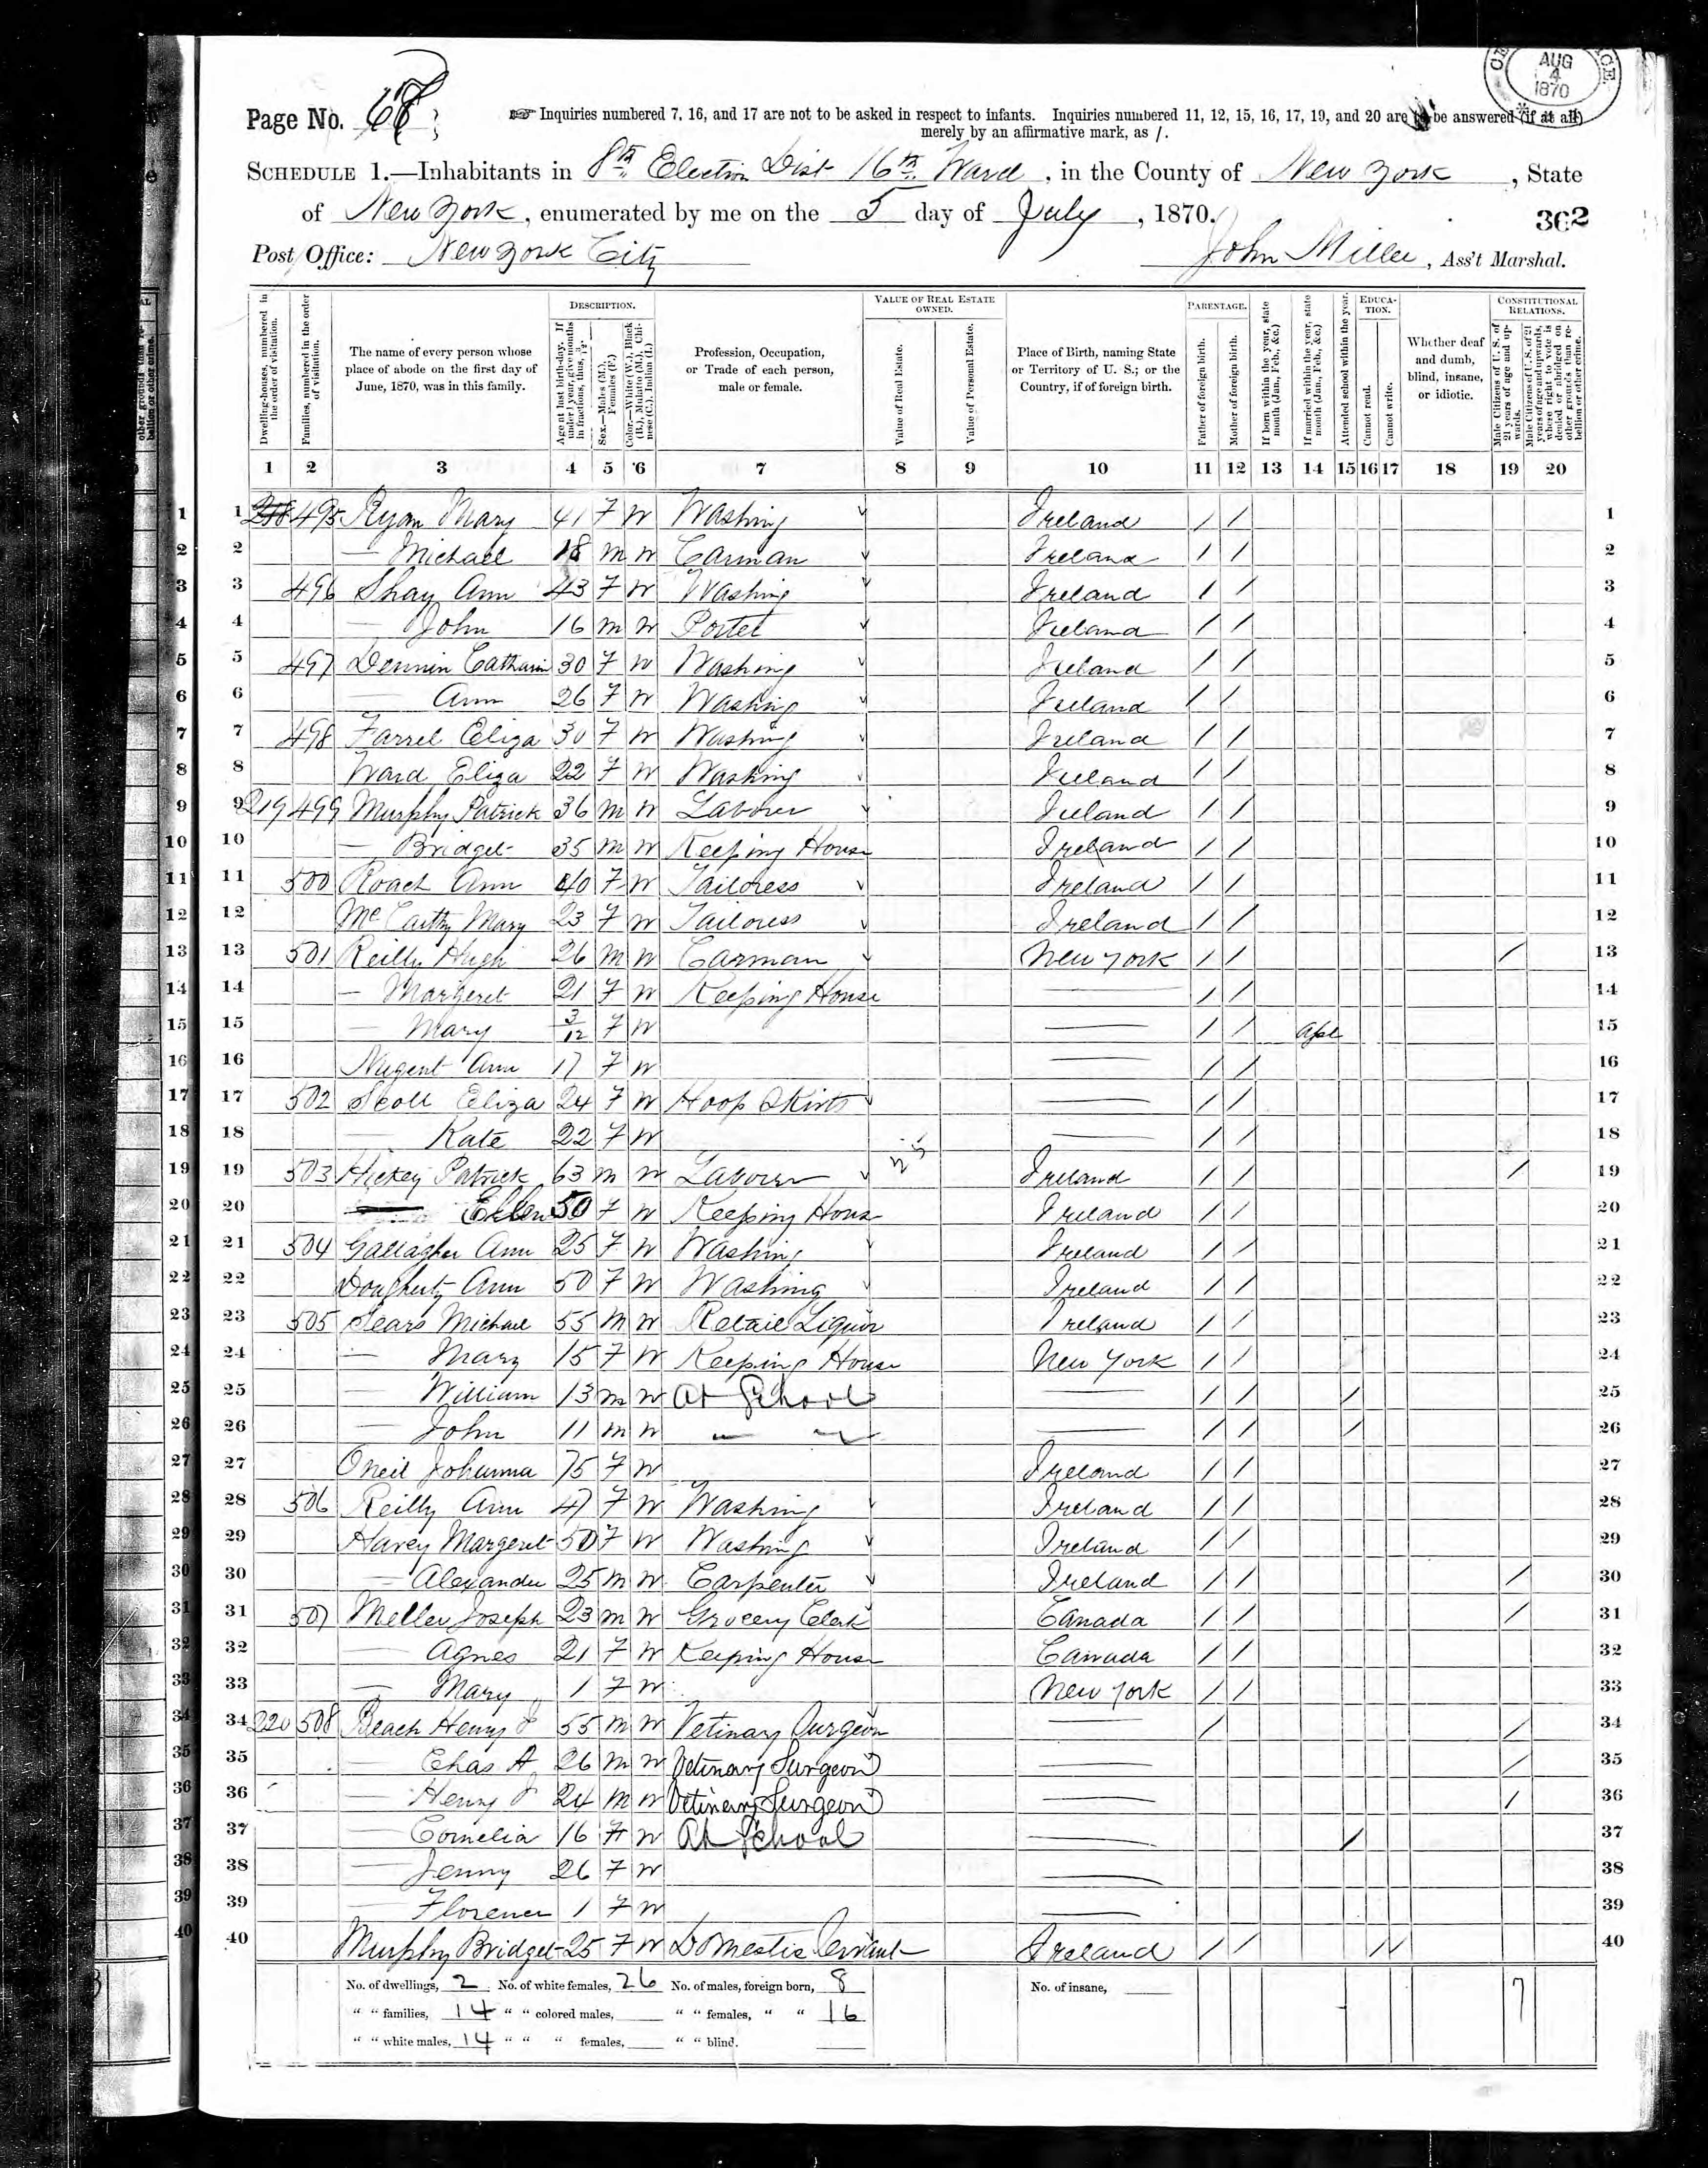 AUG
4
1870
Page No. 68
Inquiries numbered 7, 16, and 17 are not to be asked in respect to infants. Inquiries numbered 11, 12, 15, 16, 17, 19, and 20 are to be answered (if at all)
merely by an affirmative mark, as /.
SCHEDULE 1.—Inhabitants in 8th Election Dist 16th Ward, in the County of New York, State
of New York, enumerated by me on the 5 day of July, 1870.
362
Post Office: New York City
John Miller, Ass't Marshal.
Dwelling-houses, numbered in the order of visitation.
Families, numbered in the order of visitation.
The name of every person whose place of abode on the first day of June, 1870, was in this family.
DESCRIPTION.
Age at last birth-day. If under 1 year, give months in fractions, thus, 3/12.
Sex.—Males (M.), Females (F.)
Color.—White (W.), Black (B.), Mulatto (M.), Chinese (C.), Indian (I.)
Profession, Occupation, or Trade of each person, male or female.
VALUE OF REAL ESTATE OWNED.
Value of Real Estate.
Value of Personal Estate.
Place of Birth, naming State or Territory of U. S.; or the Country, if of foreign birth.
PARENTAGE.
Father of foreign birth.
Mother of foreign birth.
If born within the year, state month (Jan., Feb., &c.)
If married within the year, state month (Jan., Feb., &c.)
Attended school within the year.
EDUCATION.
Cannot read.
Cannot write.
Whether deaf and dumb, blind, insane, or idiotic.
CONSTITUTIONAL RELATIONS.
Male Citizens of U. S. of 21 years of age and upwards.
Male Citizens of U. S. of 21 years of age and upwards, where right to vote is denied or abridged on other grounds than rebellion or other crime.
1 2 3 4 5 6 7 8 9 10 11 12 13 14 15 16 17 18 19 20
1 218 495 Ryan Mary 41 F W Washing Ireland / / 1
2 — Michael 18 M W Carman Ireland / / 2
3 496 Shay Ann 43 F W Washing Ireland / / 3
4 — John 16 M W Porter Ireland / / 4
5 497 Dennin Catharin 30 F W Washing Ireland / / 5
6 — Ann 26 F W Washing Ireland / / 6
7 498 Farrel Eliza 30 F W Washing Ireland / / 7
8 Ward Eliza 22 F W Washing Ireland / / 8
9 219 499 Murphy Patrick 36 M W Laborer Ireland / / 9
10 — Bridget 35 M W Keeping House Ireland / / 10
11 500 Roach Ann 40 F W Tailoress Ireland / / 11
12 McCarthy Mary 23 F W Tailoress Ireland / / 12
13 501 Reilly Hugh 26 M W Carman New York / / / 13
14 — Margeret 21 F W Keeping House — / / 14
15 — Mary 3/12 F W — / / Apl 15
16 Nugent Ann 17 F W — / / 16
17 502 Scott Eliza 24 F W Hoop Skirts — / / 17
18 — Kate 22 F W — / / 18
19 503 Hickey Patrick 63 M W Laborer Ireland / / / 19
20 Ellen 50 F W Keeping House Ireland / / 20
21 504 Gallagher Ann 25 F W Washing Ireland / / 21
22 Dougherty Ann 50 F W Washing Ireland / / 22
23 505 Sears Michael 55 M W Retail Liquor Ireland / / 23
24 — Mary 15 F W Keeping House New York / / 24
25 — William 13 M W At School — / / / 25
26 — John 11 M W — — — / / / 26
27 Oneil Johanna 75 F W Ireland / / 27
28 506 Reilly Ann 47 F W Washing Ireland / / 28
29 Harey Margeret 50 F W Washing Ireland / / 29
30 — Alexander 25 M W Carpenter Ireland / / / 30
31 507 Meller Joseph 23 M W Grocery Clerk Canada / / / 31
32 — Agnes 21 F W Keeping House Canada / / 32
33 — Mary 1 F W New York / / 33
34 220 508 Beach Henry J 55 M W Vetinary Surgeon — / / 34
35 — Chas A 26 M W Vetinary Surgeon — / 35
36 — Henry J 24 M W Vetinary Surgeon — / 36
37 — Cornelia 16 F W At School — / 37
38 — Jenny 26 F W — 38
39 — Florence 1 F W — 39
40 Murphy Bridget 25 F W Domestic Servant Ireland / / / / 40
No. of dwellings, 2 No. of white females, 26 No. of males, foreign born, 8 No. of insane, 7
" " families, 14 " " colored males, " " females, " " 16
" " white males, 14 " " " females, " " blind.